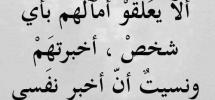 ألا يَعلقوْ أمآلهم بأي
شخصْ ، أخبرتهَمْ
ونسيتٌ أنّ أخبر نفَسي